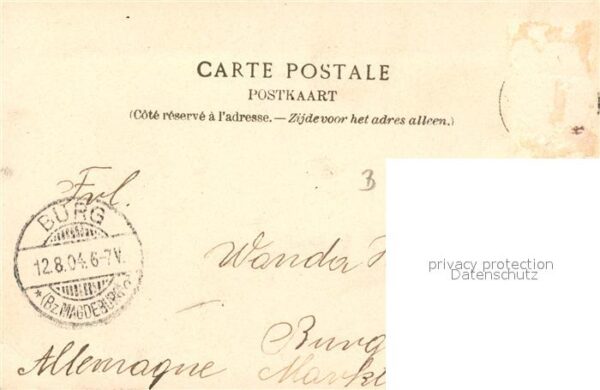 CARTE POSTALE
POSTKAART
(Côté réservé à l'adresse. — Zijde voor het adres alleen.)
B
Frl.
BURG
12.8.04.6-7V.
* (Bz. MAGDEBURG)
Wanda
privacy protection
Datenschutz
Burg
Allemagne
Markt